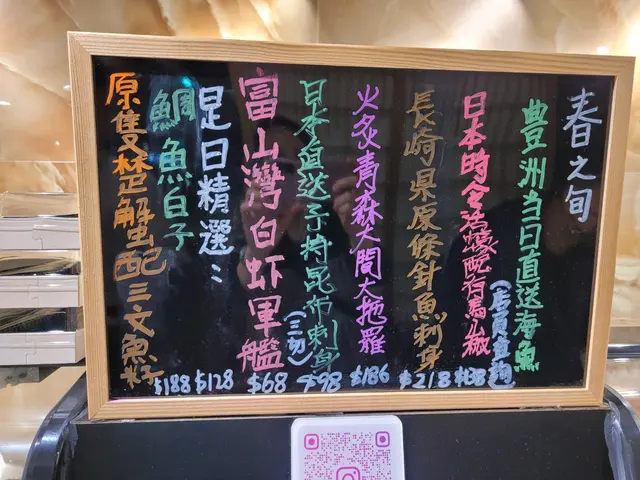 春之旬
豊洲当日直送海魚
(店員查詢)
日本時令活蠔配有馬山椒
$138
長崎県原條針魚刺身
$218
火炙青森大間大拖羅
$186
日本直送子持昆布刺身
(三切)
$98
富山灣白虾軍艦
$68
是日精選：
鯛魚白子
$128
原隻楚蟹配三文魚籽
$188